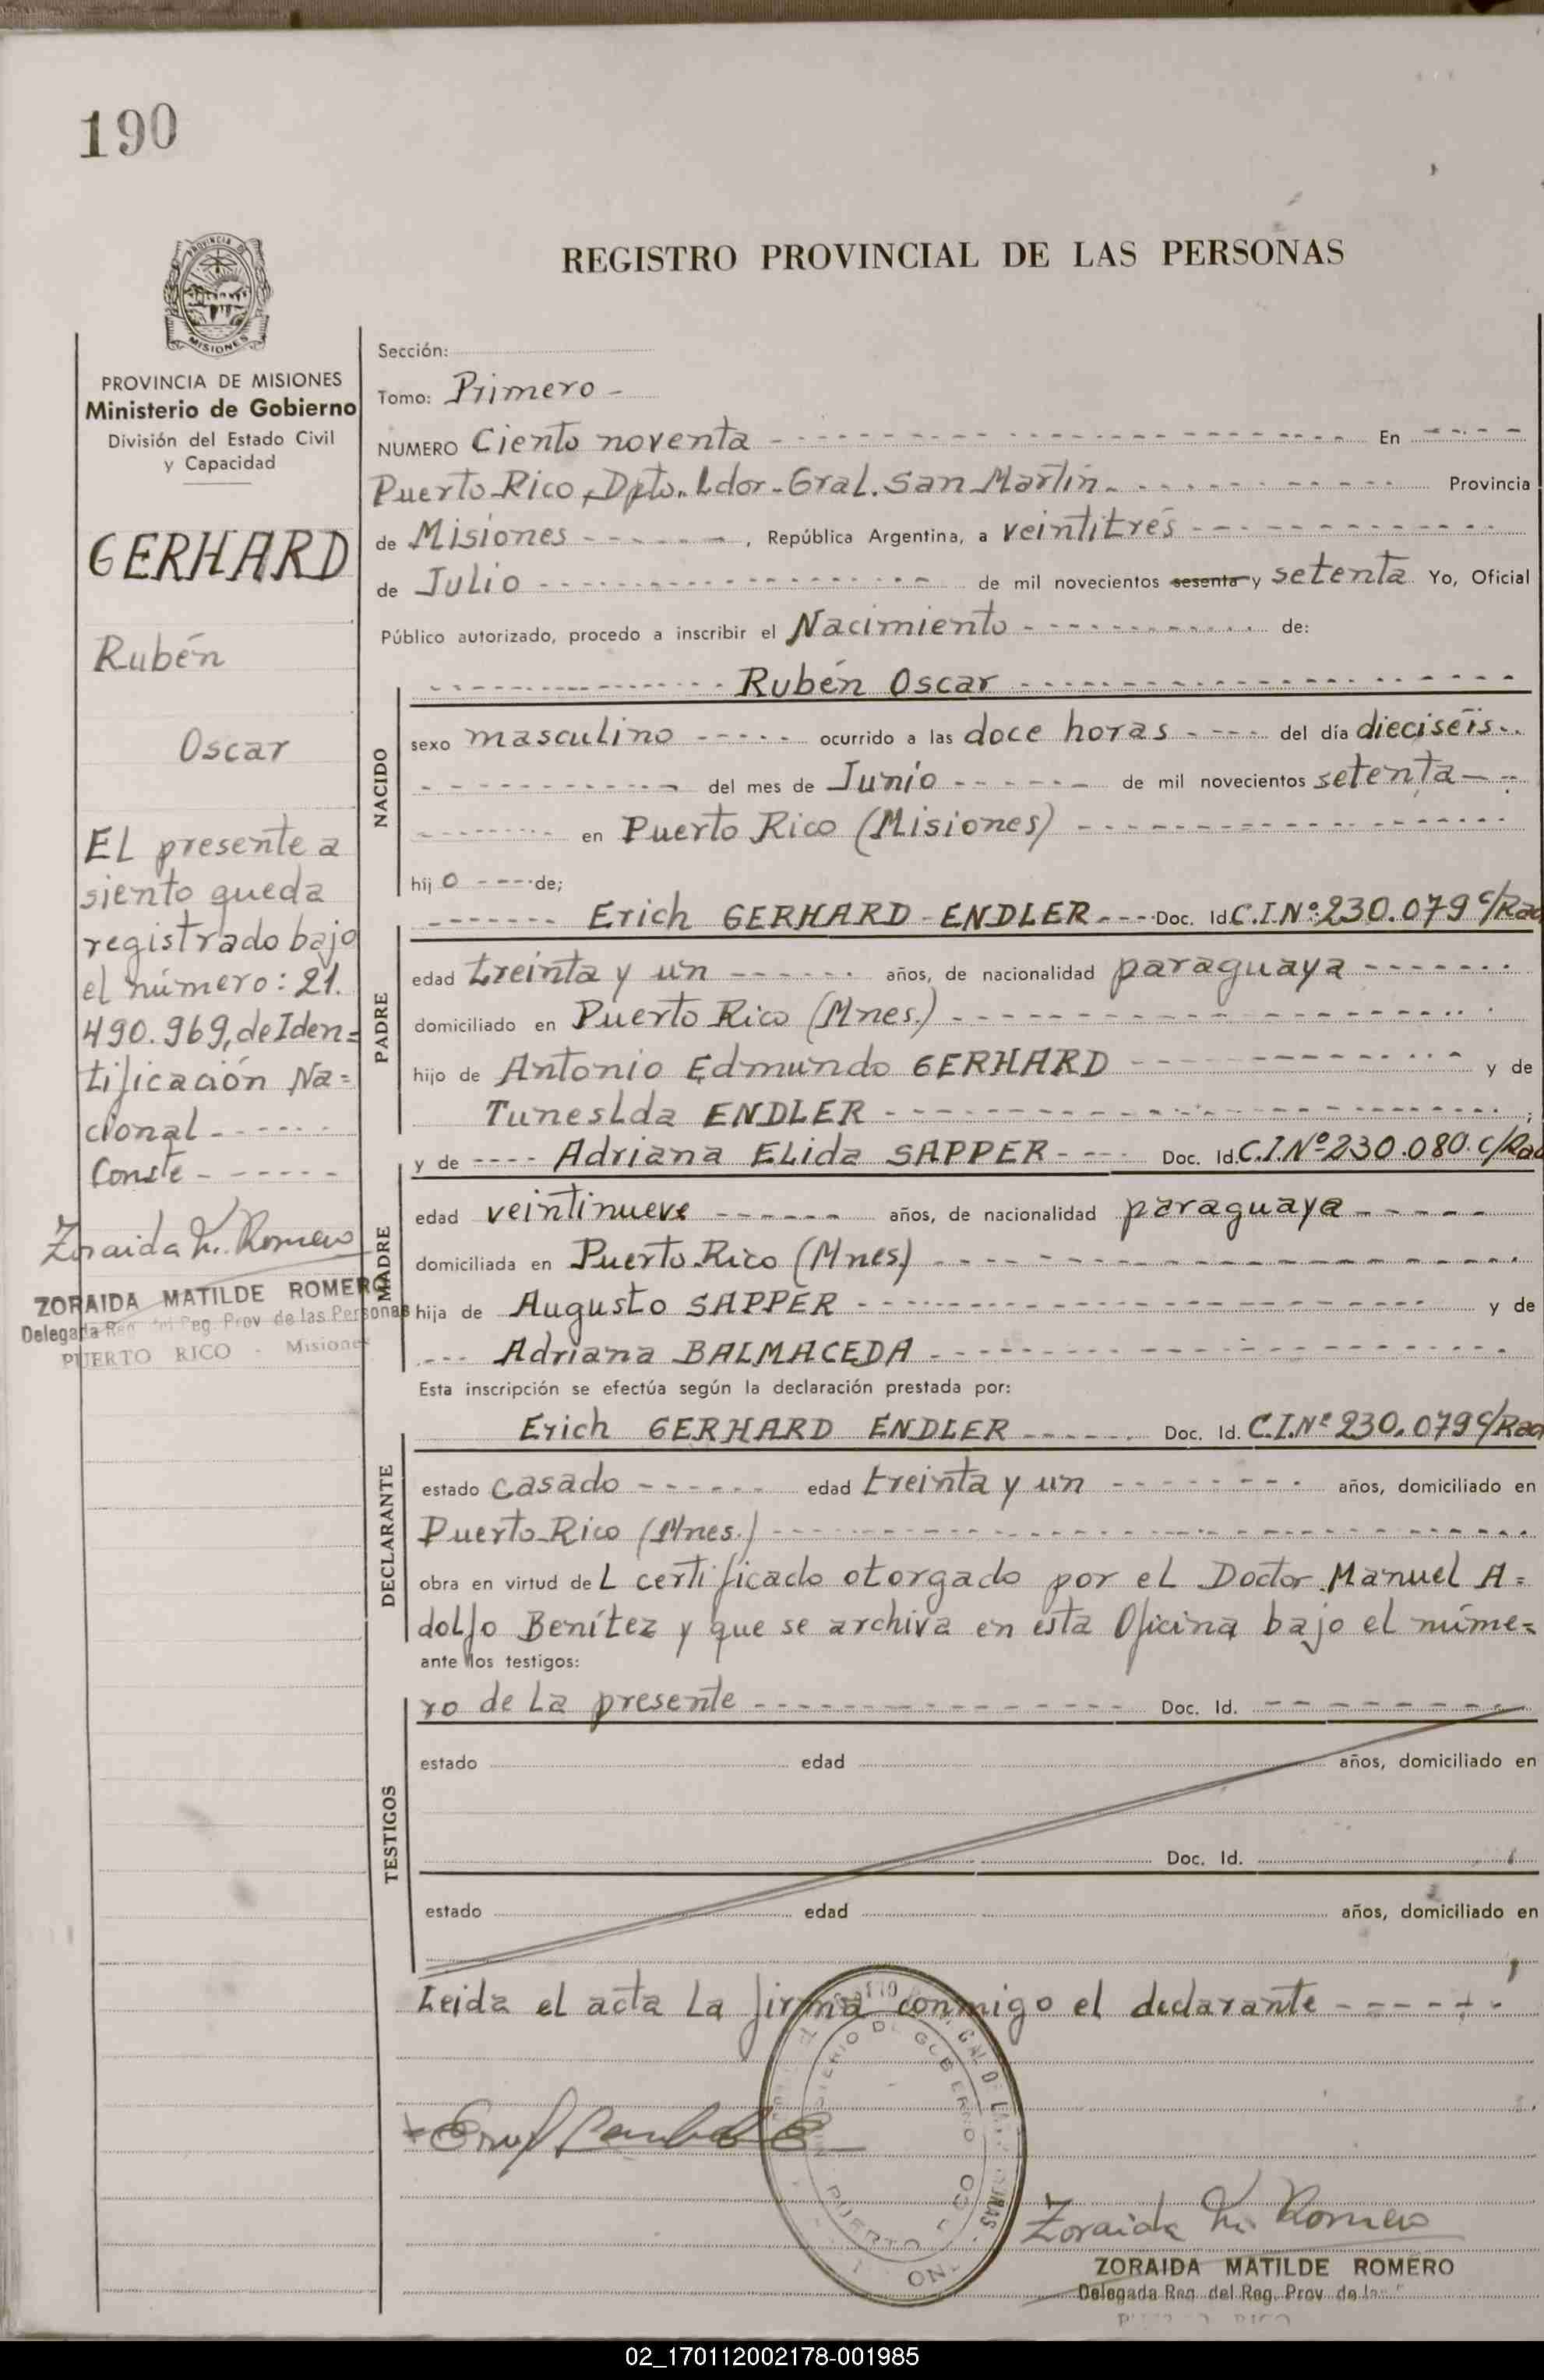 190
PROVINCIA DE
MISIONES
PROVINCIA DE MISIONES
Ministerio de Gobierno
División del Estado Civil
y Capacidad
GERHARD
Rubén
Oscar
EL presente a
siento queda
registrado bajo
el número: 21.
490.969, de Iden=
tificación Na=
cional - - - - - -
Conste - - - - - -
Zoraida M. Romero
ZORAIDA MATILDE ROMERO
Delegada Reg. del Reg. Prov. de las Personas
PUERTO RICO - Misiones
REGISTRO PROVINCIAL DE LAS PERSONAS
Sección:
Tomo: Primero -
NUMERO Ciento noventa - - - - - - En - - - - -
Puerto Rico, Dpto. Ldor. Gral. San Martín. - - - - - - Provincia
de Misiones - - - - - -, República Argentina, a veintitrés - - - - - -
de Julio - - - - - - de mil novecientos sesenta y setenta Yo, Oficial
Público autorizado, procedo a inscribir el Nacimiento - - - - - - de:
NACIDO
- - - - - - Rubén Oscar - - - - - -
sexo masculino - - - - - ocurrido a las doce horas - - - - del día dieciseis - -
- - - - - - del mes de Junio - - - - - - de mil novecientos setenta - -
- - - - - - en Puerto Rico (Misiones) - - - - - -
hij o - - - - de;
PADRE
- - - - - - Erich GERHARD - ENDLER - - - - Doc. Id. C.I.Nº 230.079 c/Rad
edad treinta y un - - - - - - años, de nacionalidad paraguaya - - - - - -
domiciliado en Puerto Rico (Mnes.) - - - - - -
hijo de Antonio Edmundo GERHARD - - - - - - y de
Tuneslda ENDLER - - - - - - ;
MADRE
y de - - - - Adriana ELida SAPPER - - - - Doc. Id. C.I.Nº 230.080. c/Rad
edad veintinueve - - - - - - años, de nacionalidad paraguaya - - - - -
domiciliada en Puerto Rico (Mnes.) - - - - - -
hija de Augusto SAPPER - - - - - - y de
- - - Adriana BALMACEDA - - - - - -
Esta inscripción se efectúa según la declaración prestada por:
DECLARANTE
Erich GERHARD ENDLER - - - - - - Doc. Id. C.I.Nº 230.079 c/Rad
estado casado - - - - - - edad treinta y un - - - - - - años, domiciliado en
Puerto Rico (Mnes.) - - - - - -
obra en virtud de L certificado otorgado por eL Doctor Manuel A=
dolfo Benítez y que se archiva en esta Oficina bajo el núme=
ante los testigos:
TESTIGOS
ro de La presente - - - - - - Doc. Id. - - - - - -
estado edad años, domiciliado en
Doc. Id.
estado edad años, domiciliado en
Leida el acta La firma conmigo el declarante - - - - - -
MINISTERIO DE GOBIERNO
PUERTO
Zoraida M. Romero
ZORAIDA MATILDE ROMERO
Delegada Reg. del Reg. Prov. de las
02_170112002178-001985